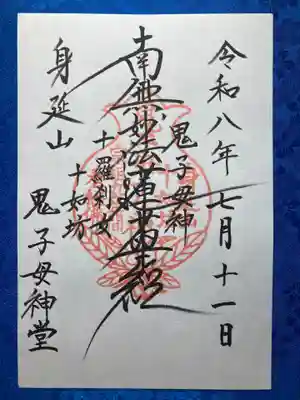 令和八年七月十一日
鬼子母神
南無妙法蓮華経
十羅刹女
十如坊
身延山
鬼子母神堂